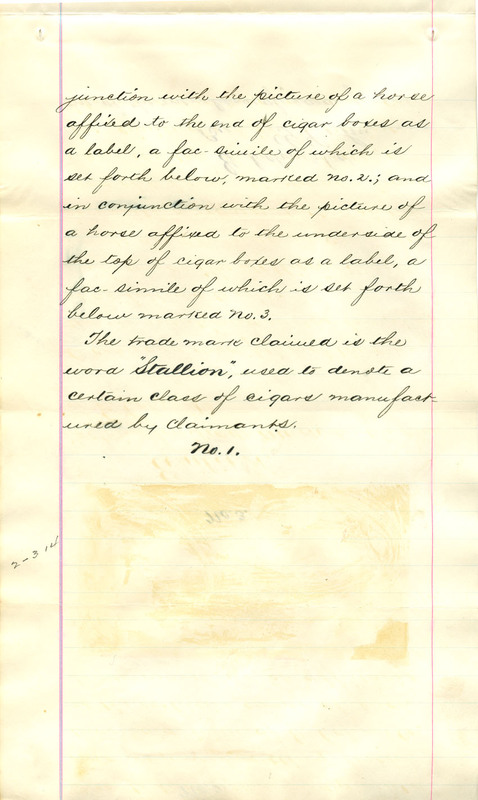 junction with the picture of a horse
affixed to the end of cigar boxes as
a label, a fac-simile of which is
set forth below, marked No. 2.; and
in conjunction with the picture of
a horse affixed to the underside of
the top of cigar boxes as a label, a
fac-simile of which is set forth
below marked No. 3.
The trade mark claimed is the
word "Stallion", used to denote a
certain class of cigars manufact=
ured by Claimants.
No. 1.
2-3 14